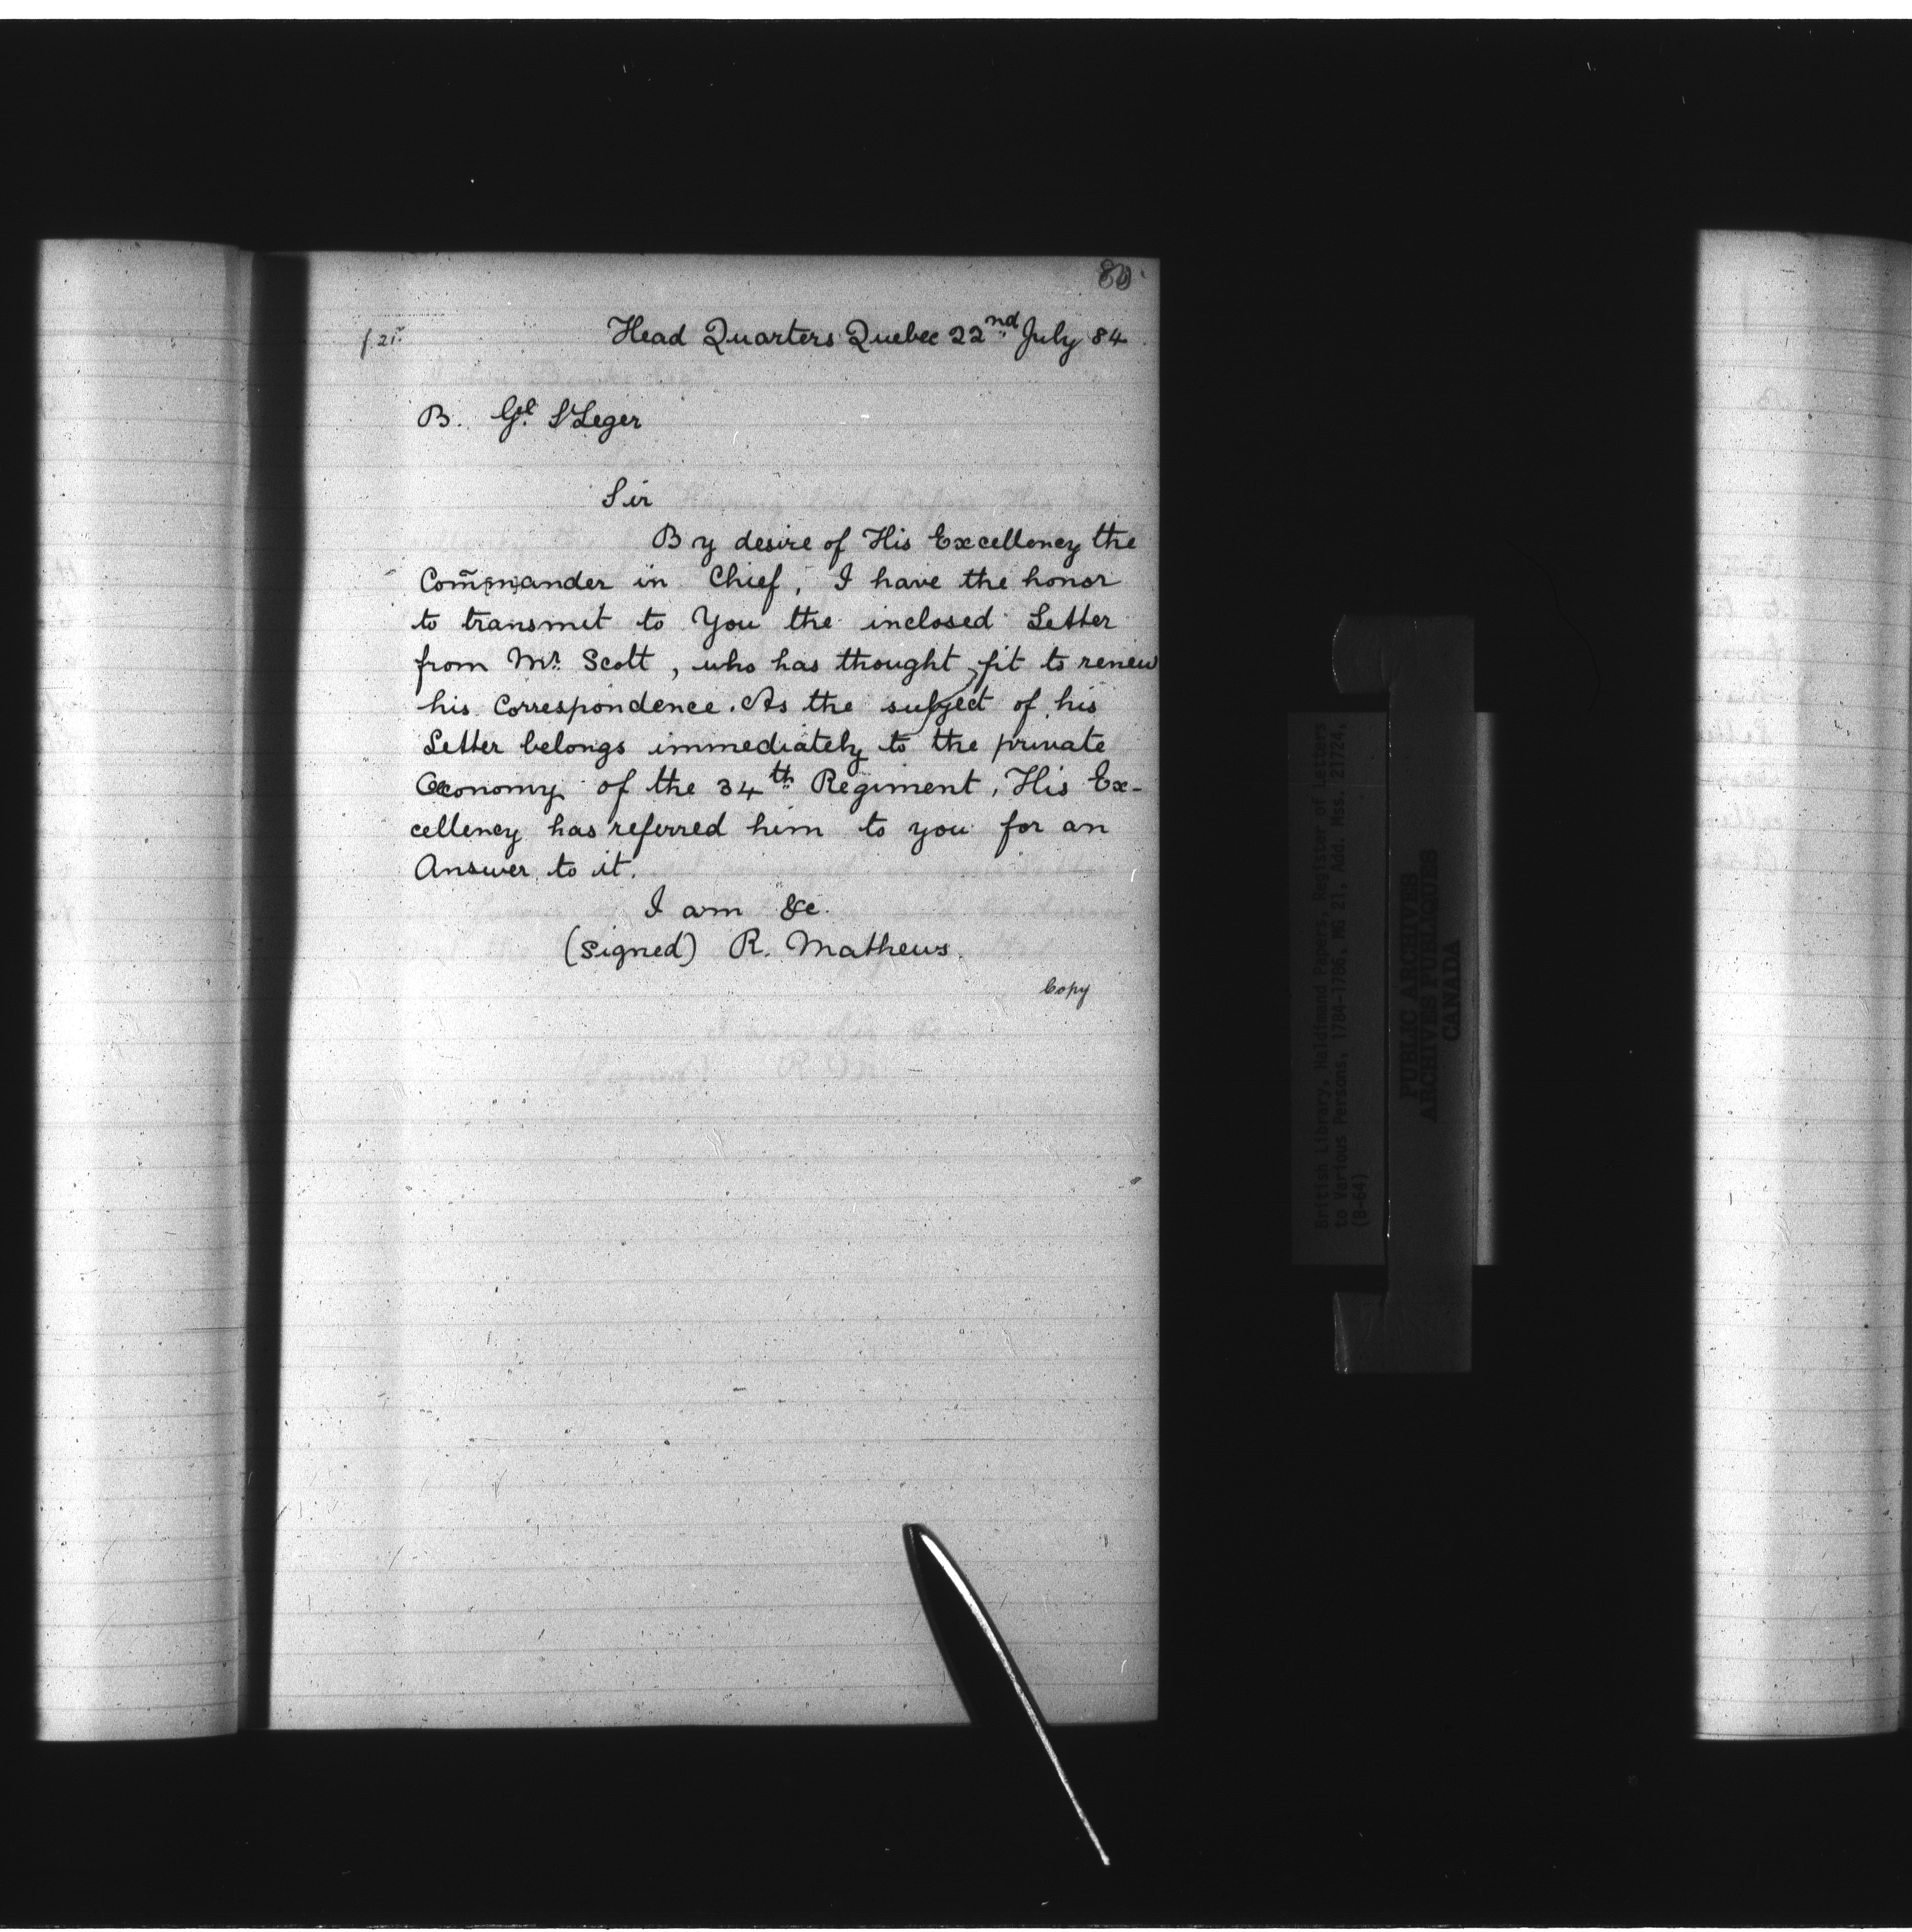 80
f. 21.
Head Quarters Quebec 22nd July 84
B. Gl. St Leger
Sir
By desire of His Excellency the
Commander in Chief, I have the honor
to transmit to You the inclosed Letter
from Mr. Scott, who has thought fit to renew
his Correspondence. As the subject of his
Letter belongs immediately to the private
Œconomy of the 34th Regiment, His Ex-
cellency has referred him to you for an
Answer to it.
I am &c.
(signed) R. Mathews.
Copy
British Library, Haldimand Papers. Register of Letters
to Various Persons, 1784-1786, MG 21, Add. Mss. 21724,
(B-64)
PUBLIC ARCHIVES
ARCHIVES PUBLIQUES
CANADA